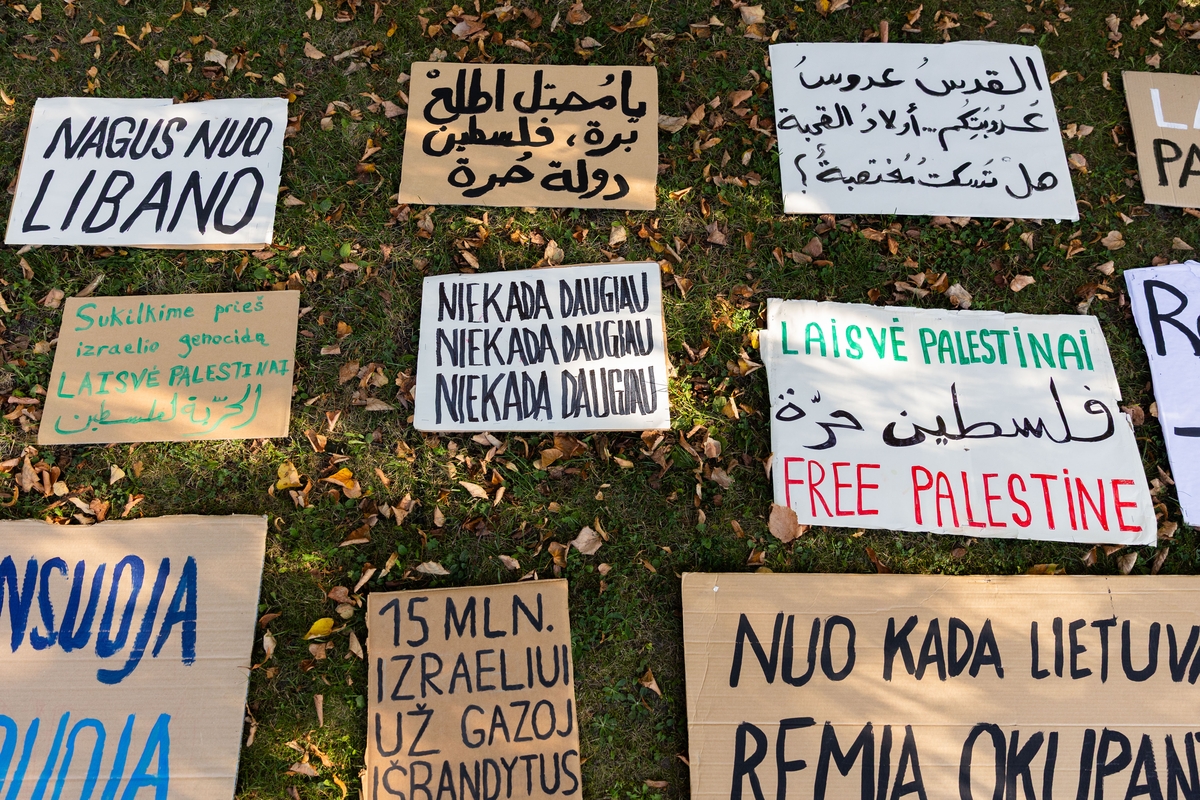 NAGUS NUO
LIBANO
يا مُحتل اطلعْ
برة، فلسطين
دولة حُرة
القدسُ عروسُ
عَروبَتِكُم.. أولادُ القحبة
هلْ تَسكت مُغتصبةٌ؟
L
PA
Sukilkime prieš
izraelio genocidą
LAISVĖ PALESTINAI
الحرّية لفلسطين
NIEKADA DAUGIAU
NIEKADA DAUGIAU
NIEKADA DAUGIAU
LAISVĖ PALESTINAI
فلسطين حرّة
FREE PALESTINE
R
NSUOJA
15 MLN.
IZRAELIUI
UŽ GAZOJ
IŠBANDYTUS
NUO KADA LIETUVA
REMIA OKUPANT